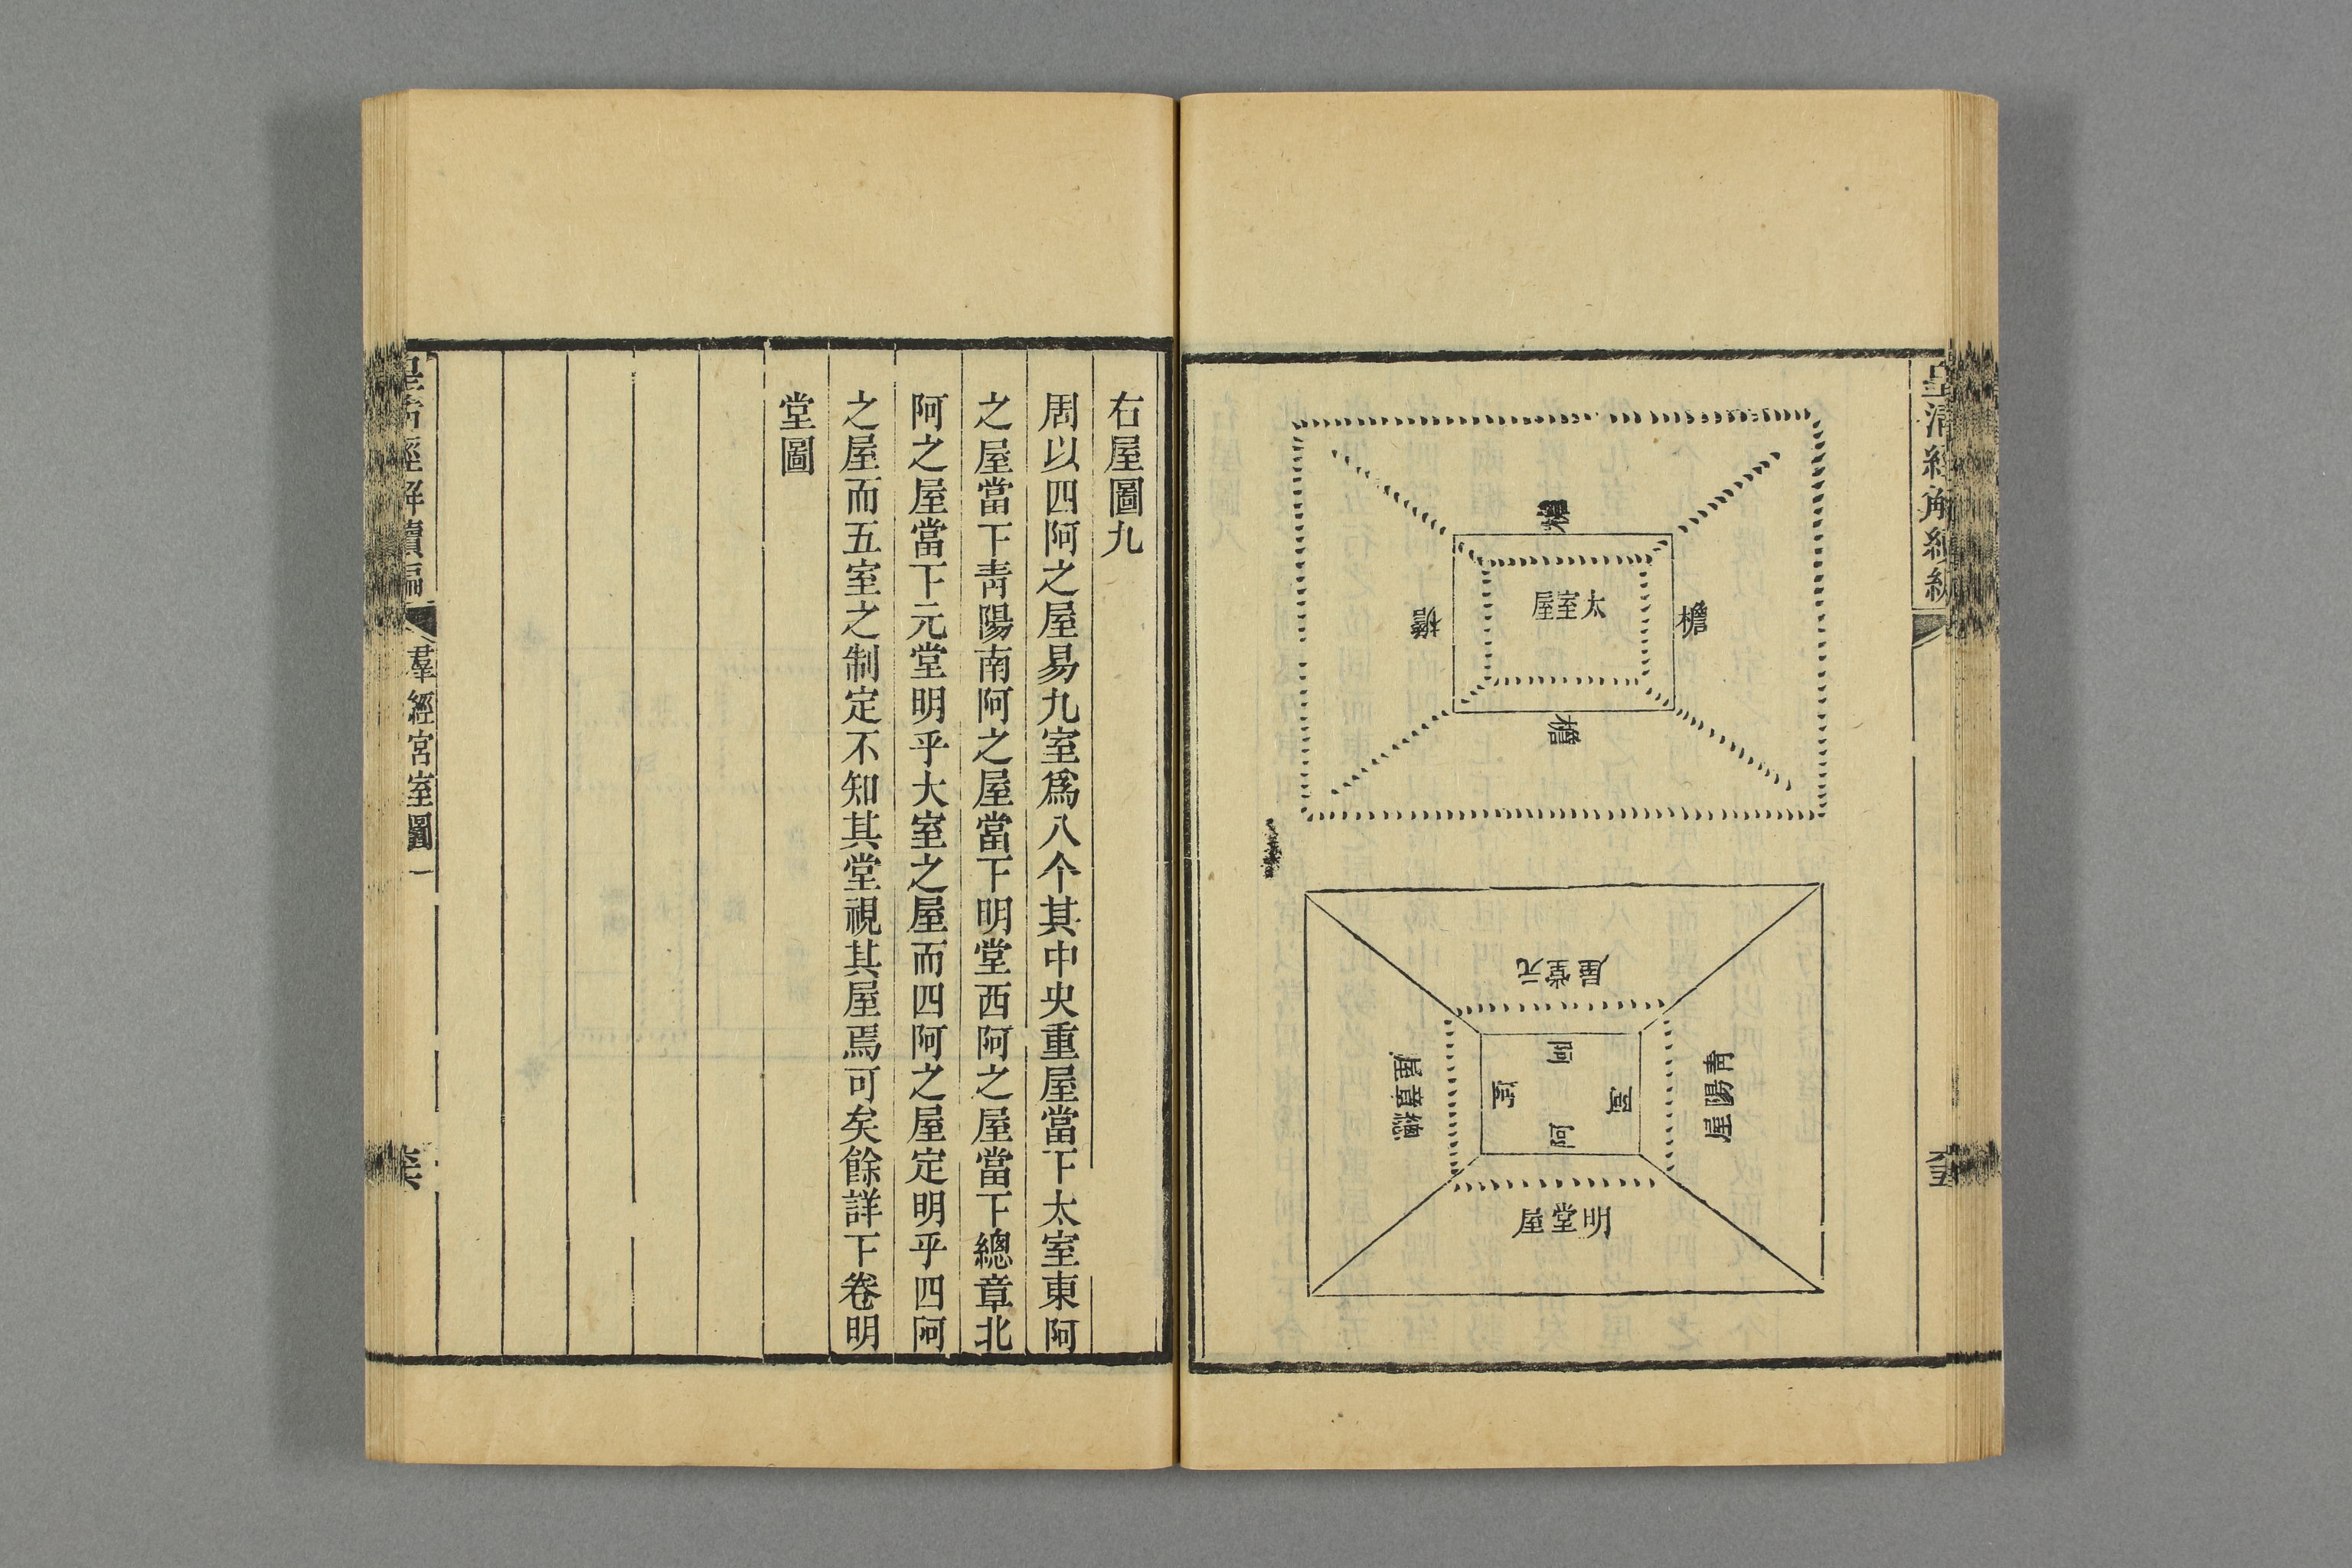 皇清經解續編
檐
檐
太室屋
檐
檐
元堂屋
阿
青陽屋
阿
阿
總章屋
阿
明堂屋
右屋圖九
周以四阿之屋易九室爲八个其中央重屋當下太室東阿
之屋當下青陽南阿之屋當下明堂西阿之屋當下總章北
阿之屋當下元堂明乎大室之屋而四阿之屋定明乎四阿
之屋而五室之制定不知其堂視其屋焉可矣餘詳下卷明
堂圖
皇清經解續編
羣經宮室圖一